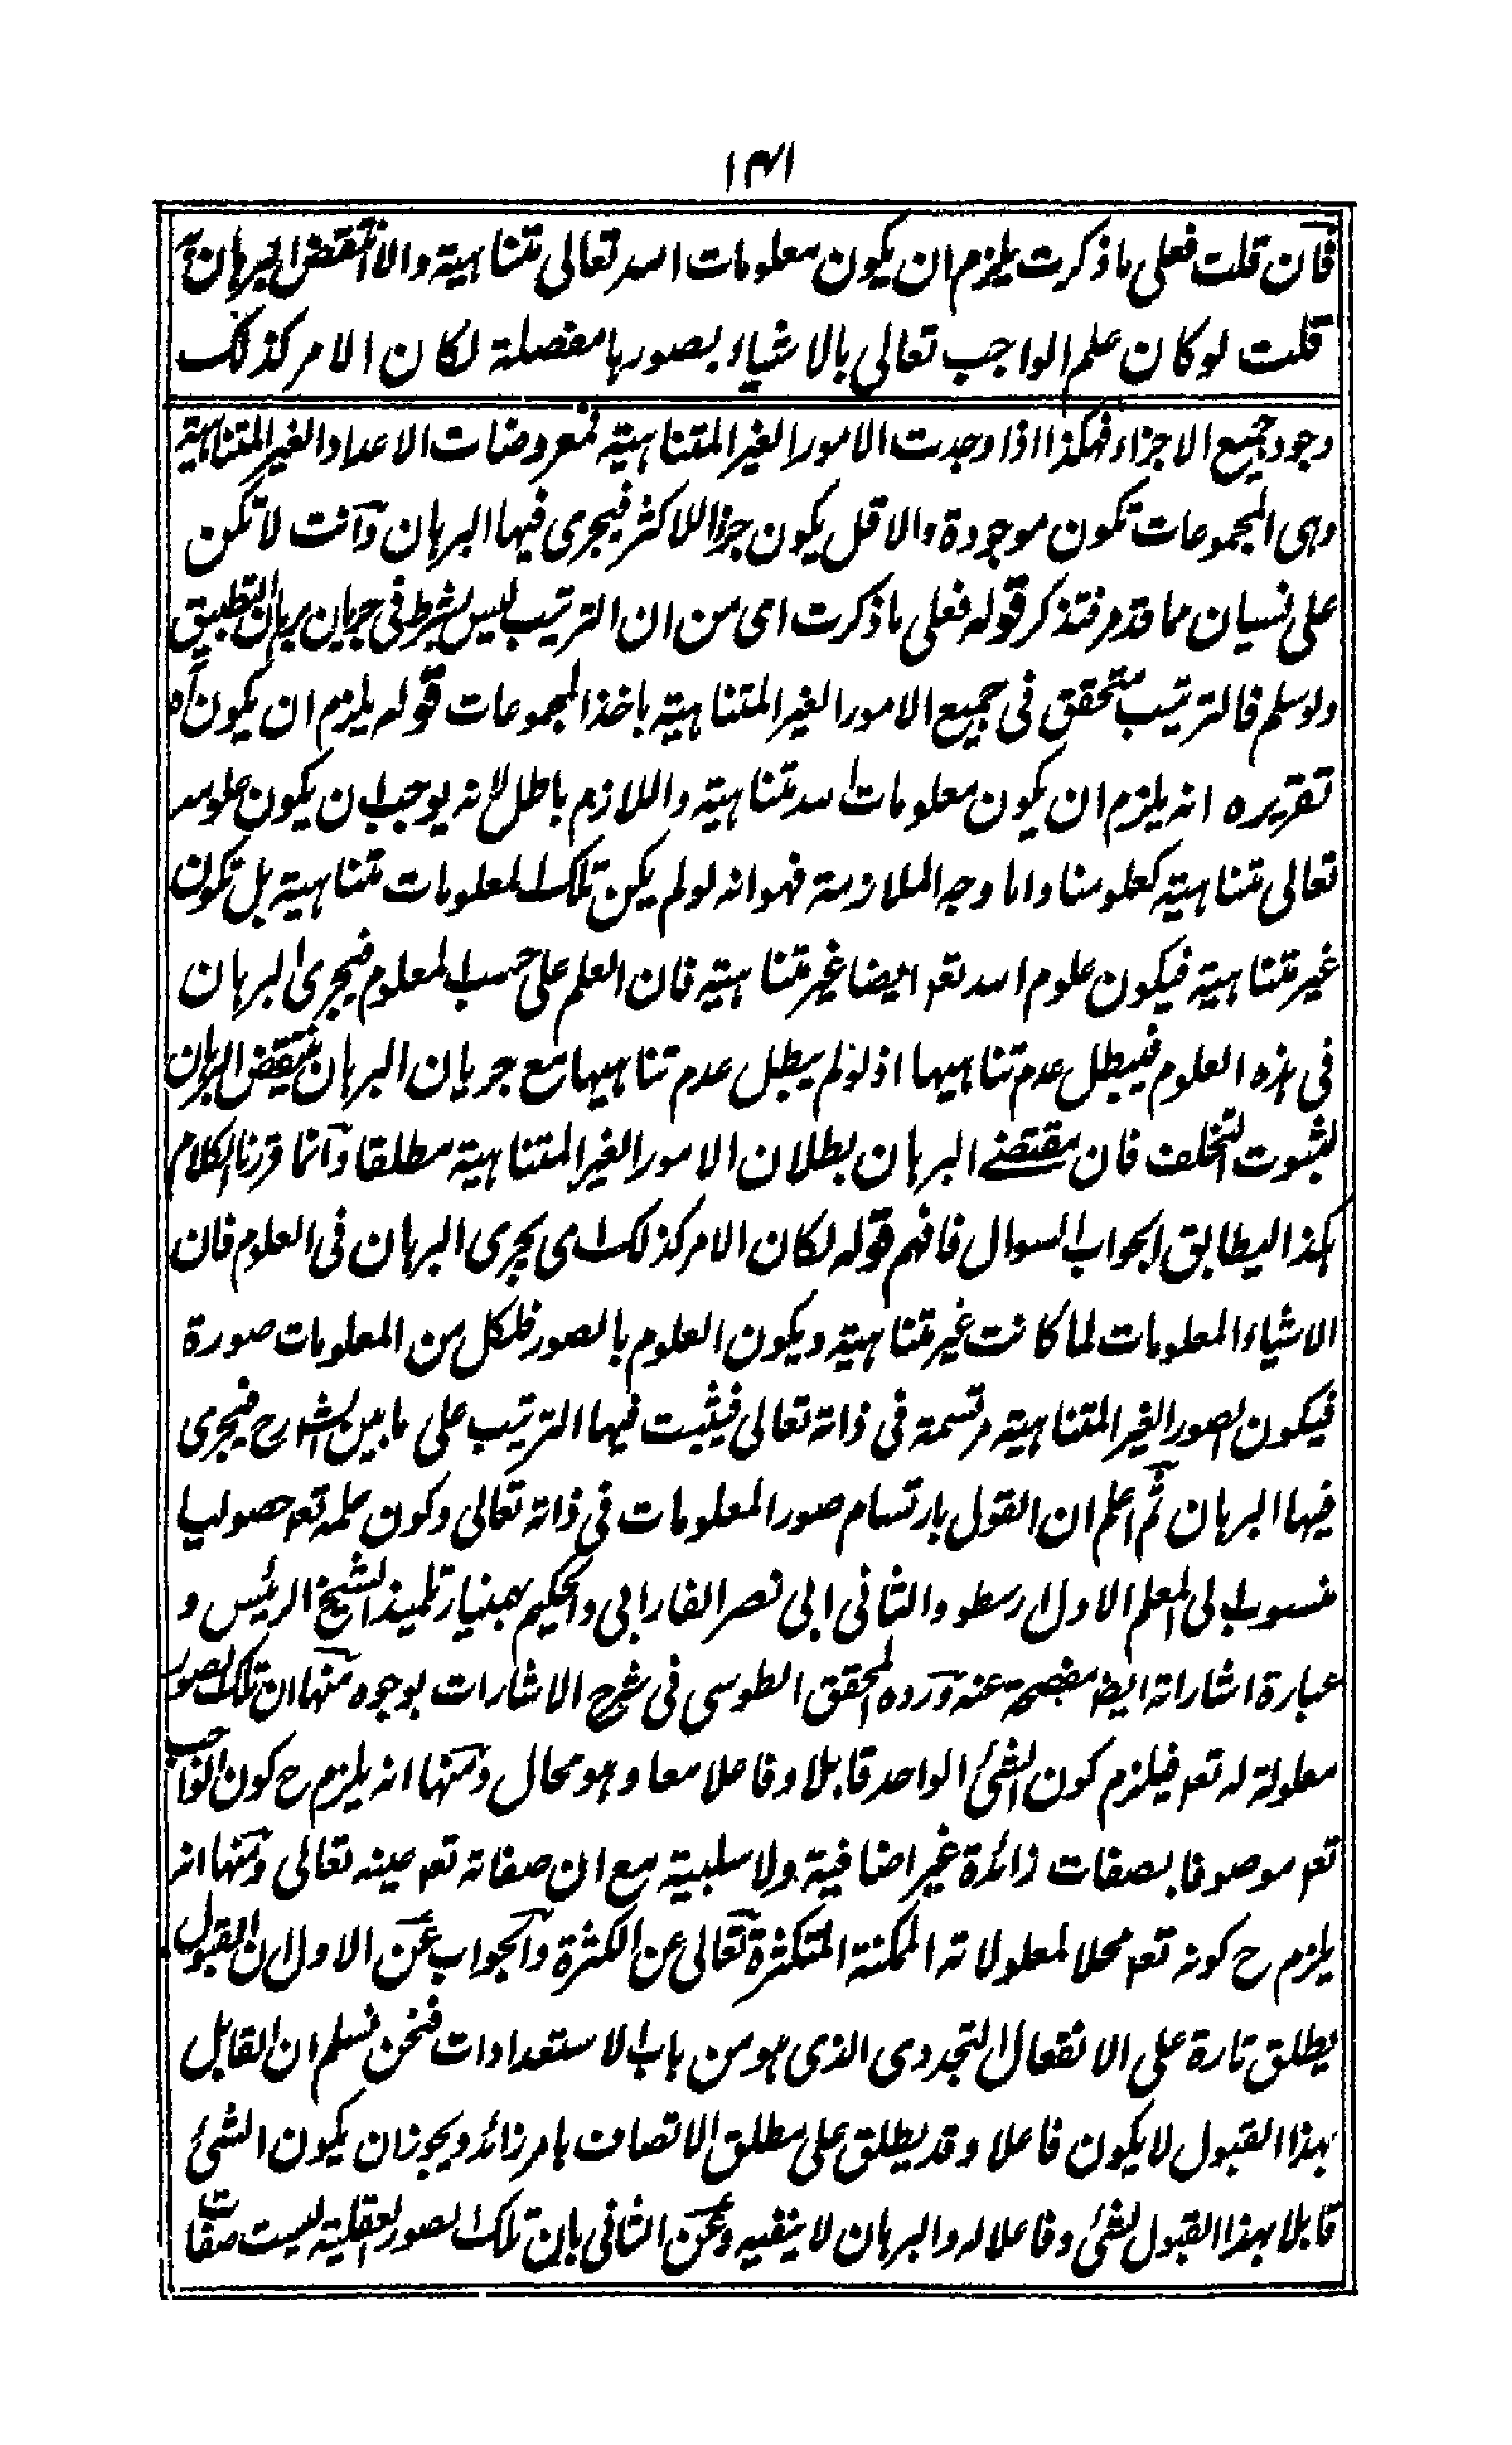 ١٤١
فان قلت فعلى ما ذكرت يلزم ان يكون معلومات الله تعالى متناهية والا انتقض البرهان
قلت لو كان علم الواجب تعالى بالاشياء بصورها مفصلة لكان الامر كذلك
وجود جميع الاجزاء فهكذا اذا وجدت الامور الغير المتناهية فمعروضات الاعداد الغير المتناهية
وهى المجموعات تكون موجودة والاقل يكون جزأ للاكثر فيجرى فيها البرهان وانت لا تكن
على نسيان مما قدم فتذكر قوله فعلى ما ذكرت اى من ان الترتيب ليس بشرط فى جريان برهان التطبيق
ولو سلم فالترتيب متحقق فى جميع الامور الغير المتناهية باخذ المجموعات قوله يلزم ان يكون آه
تقريره انه يلزم ان يكون معلومات الله متناهية واللازم باطل لانه يوجب ان يكون علوم الله
تعالى متناهية كعلومنا واما وجه الملازمة فهو انه لو لم يكن تلك المعلومات متناهية بل تكون
غير متناهية فيكون علوم الله تعه ايضا غير متناهية فان العلم على حسب المعلوم فيجرى البرهان
فى هذه العلوم فيبطل عدم تناهيها اذ لو لم يبطل عدم تناهيها مع جريان البرهان ينتقض البرهان
لثبوت التخلف فان مقتضى البرهان بطلان الامور الغير المتناهية مطلقا وانما قررنا الكلام
هكذا ليطابق الجواب السوال فافهم قوله لكان الامر كذلك اى يجرى البرهان فى العلوم فان
الاشياء المعلومات لما كانت غير متناهية ويكون العلوم بالصور فلكل من المعلومات صورة
فيكون الصور الغير المتناهية مرتسمة فى ذاته تعالى فيثبت فيها الترتيب على ما بين الشارح فيجرى
فيها البرهان ثم اعلم ان القول بارتسام صور المعلومات فى ذاته تعالى وكون علمه تعه حصوليا
منسوب الى المعلم الاول ارسطو والثانى ابى نصر الفارابى والحكيم بهمنيار تلميذ الشيخ الرئيس و
عبارة اشاراته ايضا مفصحة عنه ورده المحقق الطوسى فى شرح الاشارات بوجوه منها ان تلك الصور
معلولة له تعه فيلزم كون الشئ الواحد قابلا وفاعلا معا وهو محال ومنها انه يلزم ح كون الواجب
تعه موصوفا بصفات زائدة غير اضافية ولا سلبية مع ان صفاته تعه عينه تعالى ومنها انه
يلزم ح كونه تعه محلا لمعلولاته الممكنة المتكثرة تعالى عن الكثرة والجواب عن الاول ان القبول
يطلق تارة على الانفعال التجددى الذى هو من باب الاستعدادات فنحن نسلم ان القابل
بهذا القبول لا يكون فاعلا وقد يطلق على مطلق الاتصاف بامر زائد ويجوز ان يكون الشئ
قابلا بهذا القبول لشئ وفاعلا له والبرهان لا ينفيه وعن الثانى بان تلك الصور العقلية ليست صفات